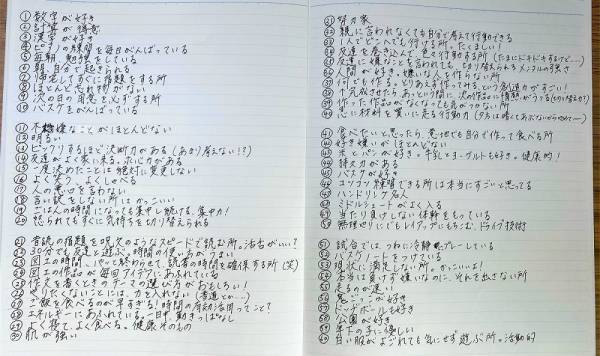 ① 数字が好き
② 計算が得意
③ 漢字が好き
④ ピアノの練習を毎日がんばっている
⑤ 毎朝、勉強をしている
⑥ 朝、自分で起きられる
⑦ 帰宅してすぐに宿題をする所
⑧ ほとんど忘れ物がない
⑨ 次の日の用意を必ずする所
⑩ バスケをがんばっている
⑪ 不機嫌なことがほとんどない
⑫ 明るい
⑬ ビックリするほど決断力がある(あまり考えない!?)
⑭ 友達がよく家に来る。
⑮ 一度決めたことは絶対に変更しない
⑯ よく笑う。よくしゃべる
⑰ 人の悪口を言わない
⑱ 言い訳をしない所はかっこいい
⑲ ごはんの時間になっても集中し続ける、集中力!
⑳ 怒られてもすぐに気持ちを切り替えられる
㉑ 音読の宿題を呪文のようなスピードで読む所。滑舌がいい?
㉒ 30分でも友達と遊ぶ。時間の使い方がうまい
㉓ 図工の時間、パッと終わらせて、読書の時間を確保する所(笑)
㉔ 図工の作品が毎回アイデアにあふれている
㉕ 作文を書くときのテーマの選び方がおもしろい!
㉖ やりたくないことには、力を入れない(書道とか…)
㉗ ご飯を食べるのが早すぎる!時間の有効活用ってこと?
㉘ エネルギーにあふれている。一日中、動きっぱなし
㉙ よく寝て、よく食べる。健康そのもの
㉚ 肌が強い
㉛ 努力家
㉜ 親に言われなくても自分で考えて行動できる
㉝ 1人でどこへでも行ける所。たくましい!
㉞ 友達を巻き込んで、色々行動する所(たまにドキドキするけど…)
㉟ 友達に嫌なことを言われても、切り替えられるメンタルの強さ
㊱ 人間が好き。嫌いな人を作らない所
㊲ 何でも作る、とりあえず作ってみる、という創造力がすごい!
㊳ 一つ完成させたらあっという間に、次の作品に情熱がうつる(切り替え力?)
㊴ 作った作品がなくなっても気がつかない所
㊵
㊶ 食べたいと思ったら、意地でも自分で作って食べる所
㊷ 好き嫌いがほとんどない
㊸ 米とパンが好き。牛乳とヨーグルトも好き。健康的!
㊹ 体力がある
㊺ バスケが好き
㊻ コツコツ練習できる所は本当にすごいと思ってる
㊼ ハンドリング名人
㊽ ミドルシュートがよく入る
㊾ 当たり負けしない体幹をもっている
㊿ 無理矢理にでもレイアップにもちこむ、ドライブ技術
51 試合では、つねに冷静にプレーしている
52 バスケノートをつけている
53 現状に満足しない所。かっこいいよ!
54 本当は負けず嫌いなのに、それを出さない所
55 走るのが速い
56 鬼ごっこが好き
57 ドッジボールも好き
58 公園が好き
59 年下の子に優しい
60 白い服がよごれても気にせず遊ぶ所。活動的